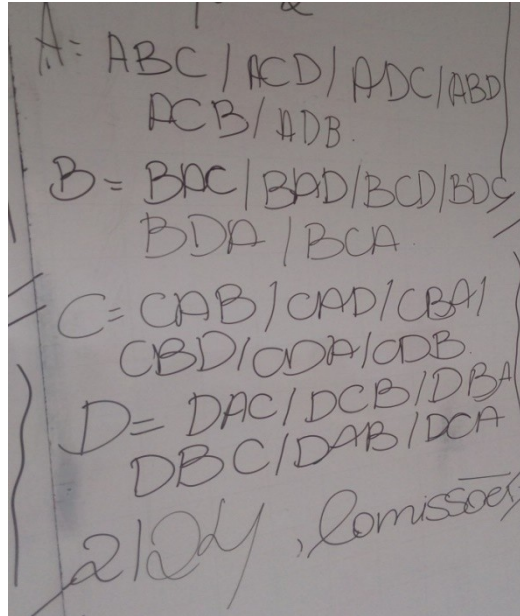 A= ABC / ACD / ADC / ABD
ACB / ADB.
B= BAC / BAD / BCD / BDC
BDA / BCA.
C= CAB / CAD / CBA /
CBD / CDA / CDB.
D= DAC / DCB / DBA
DBC / DAB / DCA
24, Comissões